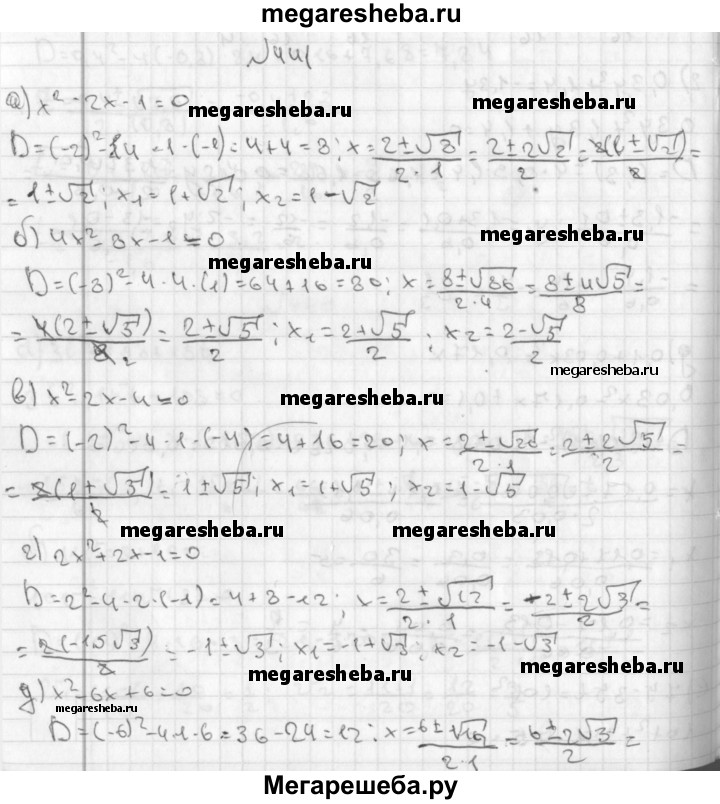 megaresheba.ru
№441
а) x² - 2x - 1 = 0
megaresheba.ru megaresheba.ru
D = (-2)² - 4 · 1 · (-1) = 4 + 4 = 8; x = (2 ± √8)/(2 · 1) = (2 ± 2√2)/2 = 2(1 ± √2)/2 =
= 1 ± √2; x₁ = 1 + √2; x₂ = 1 - √2
б) 4x² - 8x - 1 = 0
megaresheba.ru megaresheba.ru
D = (-8)² - 4 · 4 · (1) = 64 + 16 = 80; x = (8 ± √80)/(2 · 4) = (8 ± 4√5)/8 =
= 4(2 ± √5)/8 2 = (2 ± √5)/2; x₁ = (2 + √5)/2; x₂ = (2 - √5)/2
megaresheba.ru
в) x² - 2x - 4 = 0
megaresheba.ru
D = (-2)² - 4 · 1 · (-4) = 4 + 16 = 20; x = (2 ± √20)/(2 · 1) = (2 ± 2√5)/2 =
= 2(1 ± √5)/2 = 1 ± √5; x₁ = 1 + √5; x₂ = 1 - √5
megaresheba.ru megaresheba.ru
г) 2x² + 2x - 1 = 0
D = 2² - 4 · 2 · (-1) = 4 + 8 = 12; x = (2 ± √12)/(2 · 1) = (-2 ± 2√3)/2 =
= 2(-1 ± √3)/2 = -1 ± √3; x₁ = -1 + √3; x₂ = -1 - √3
megaresheba.ru megaresheba.ru
д) x² - 6x + 6 = 0
megaresheba.ru
D = (-6)² - 4 · 1 · 6 = 36 - 24 = 12; x = (6 ± √12)/(2 · 1) = (6 ± 2√3)/2 =
Мегарешеба.ру